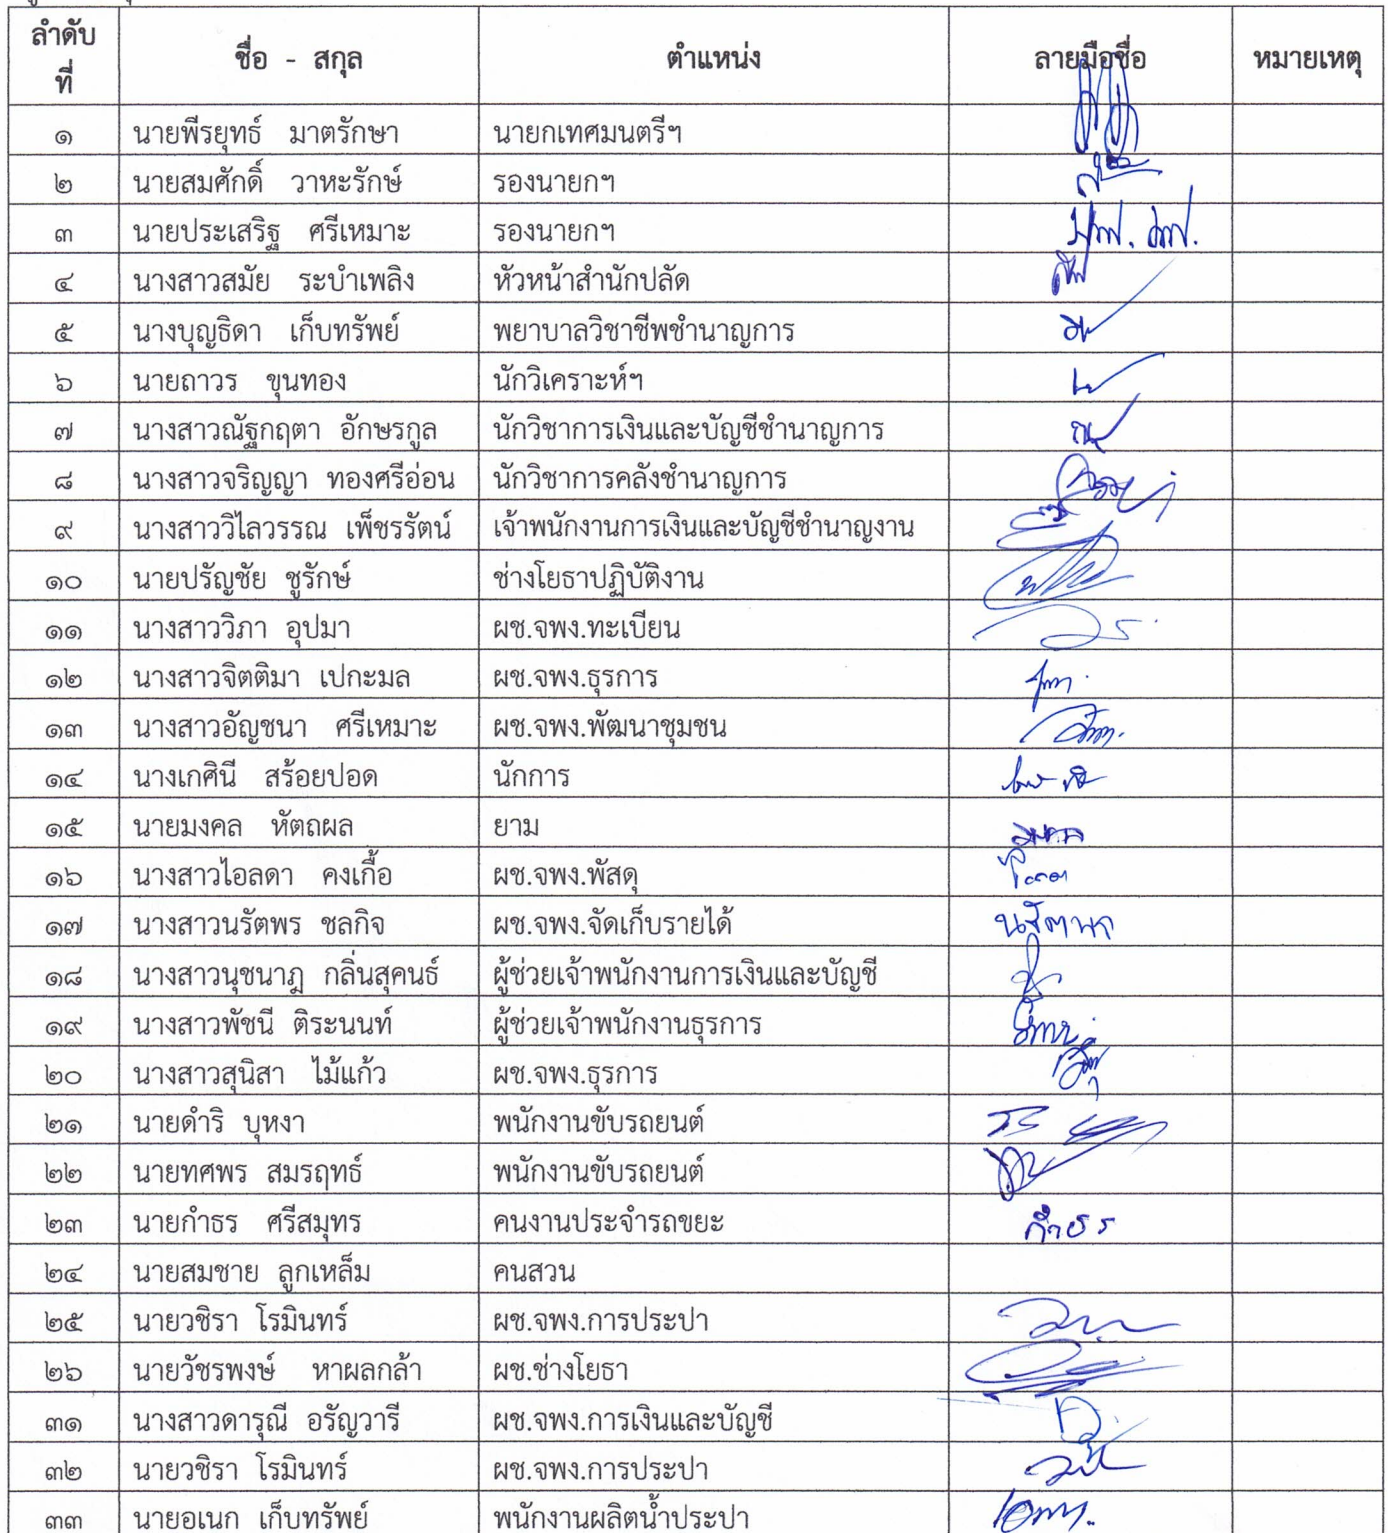 ลำดับที่ ชื่อ - สกุล ตำแหน่ง ลายมือชื่อ หมายเหตุ
๑ นายพีรยุทธ์ มาตรักษา นายกเทศมนตรีฯ
๒ นายสมศักดิ์ วาหะรักษ์ รองนายกฯ
๓ นายประเสริฐ ศรีเหมาะ รองนายกฯ
๔ นางสาวสมัย ระบำเพลิง หัวหน้าสำนักปลัด
๕ นางบุญธิดา เก็บทรัพย์ พยาบาลวิชาชีพชำนาญการ
๖ นายถาวร ขุนทอง นักวิเคราะห์ฯ
๗ นางสาวณัฐกฤตา อักษรกูล นักวิชาการเงินและบัญชีชำนาญการ
๘ นางสาวจริญญา ทองศรีอ่อน นักวิชาการคลังชำนาญการ
๙ นางสาววิไลวรรณ เพ็ชรรัตน์ เจ้าพนักงานการเงินและบัญชีชำนาญงาน
๑๐ นายปรัญชัย ชูรักษ์ ช่างโยธาปฏิบัติงาน
๑๑ นางสาววิภา อุปมา ผช.จพง.ทะเบียน
๑๒ นางสาวจิตติมา เปกะมล ผช.จพง.ธุรการ
๑๓ นางสาวอัญชนา ศรีเหมาะ ผช.จพง.พัฒนาชุมชน
๑๔ นางเกศินี สร้อยปอด นักการ
๑๕ นายมงคล หัตถผล ยาม
๑๖ นางสาวไอลดา คงเกื้อ ผช.จพง.พัสดุ
๑๗ นางสาวนรัตพร ชลกิจ ผช.จพง.จัดเก็บรายได้ นรัตพร
๑๘ นางสาวนุชนาฎ กลิ่นสุคนธ์ ผู้ช่วยเจ้าพนักงานการเงินและบัญชี
๑๙ นางสาวพัชนี ติระนนท์ ผู้ช่วยเจ้าพนักงานธุรการ
๒๐ นางสาวสุนิสา ไม้แก้ว ผช.จพง.ธุรการ
๒๑ นายดำริ บุหงา พนักงานขับรถยนต์
๒๒ นายทศพร สมรฤทธ์ พนักงานขับรถยนต์
๒๓ นายกำธร ศรีสมุทร คนงานประจำรถขยะ กำธร
๒๔ นายสมชาย ลูกเหล็ม คนสวน
๒๕ นายวชิรา โรมินทร์ ผช.จพง.การประปา
๒๖ นายวัชรพงษ์ หาผลกล้า ผช.ช่างโยธา
๓๑ นางสาวดารุณี อรัญวารี ผช.จพง.การเงินและบัญชี
๓๒ นายวชิรา โรมินทร์ ผช.จพง.การประปา
๓๓ นายอเนก เก็บทรัพย์ พนักงานผลิตน้ำประปา